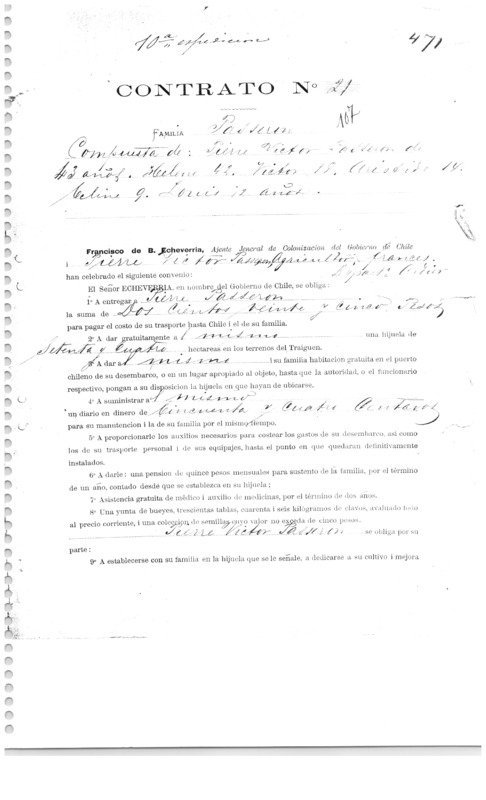 10ª espedicion
471
CONTRATO Nº 21
107
FAMILIA Passeron
Compuesta de: Pierre Victor Passeron de
43 años. Helene 42. Victor 18. Aristide 14.
Celine 9. Louis 12 años.
Francisco de B. Echeverria, Ajente Jeneral de Colonizacion del Gobierno de Chile
i Pierre Victor Passeron Agricultor, frances.
han celebrado el siguiente convenio:
El Señor ECHEVERRIA, en nombre del Gobierno de Chile, se obliga:
1º A entregar a Pierre Passeron
la suma de Dos Cientos veinte y cinco Pesos
para pagar el costo de su trasporte hasta Chile i el de su familia.
2º A dar gratuitamente a l mismo una hijuela de
Setenta y Cuatro hectareas en los terrenos del Traiguen.
3º A dar a l mismo i su familia habitacion gratuita en el puerto
chileno de su desembarco, o en un lugar apropiado al objeto, hasta que la autoridad, o el funcionario
respectivo, pongan a su disposicion la hijuela en que hayan de ubicarse.
4º A suministrar a l mismo
un diario en dinero de Cincuenta y Cuatro Centavos
para su manutencion i la de su familia por el mismo tiempo.
5º A proporcionarle los auxilios necesarios para costear los gastos de su desembarco, asi como
los de su trasporte personal i de sus equipajes, hasta el punto en que quedaran definitivamente
instalados.
6º A darle: una pension de quince pesos mensuales para sustento de la familia, por el término
de un año, contado desde que se establezca en su hijuela;
7º Asistencia gratuita de médico i auxilio de medicinas, por el término de dos años.
8º Una yunta de bueyes, trescientas tablas, cuarenta i seis kilógramos de clavos, avaluado todo
al precio corriente, i una coleccion de semillas cuyo valor no exceda de cinco pesos.
Pierre Victor Passeron se obliga por su
parte:
9º A establecerse con su familia en la hijuela que se le señale, a dedicarse a su cultivo i mejora